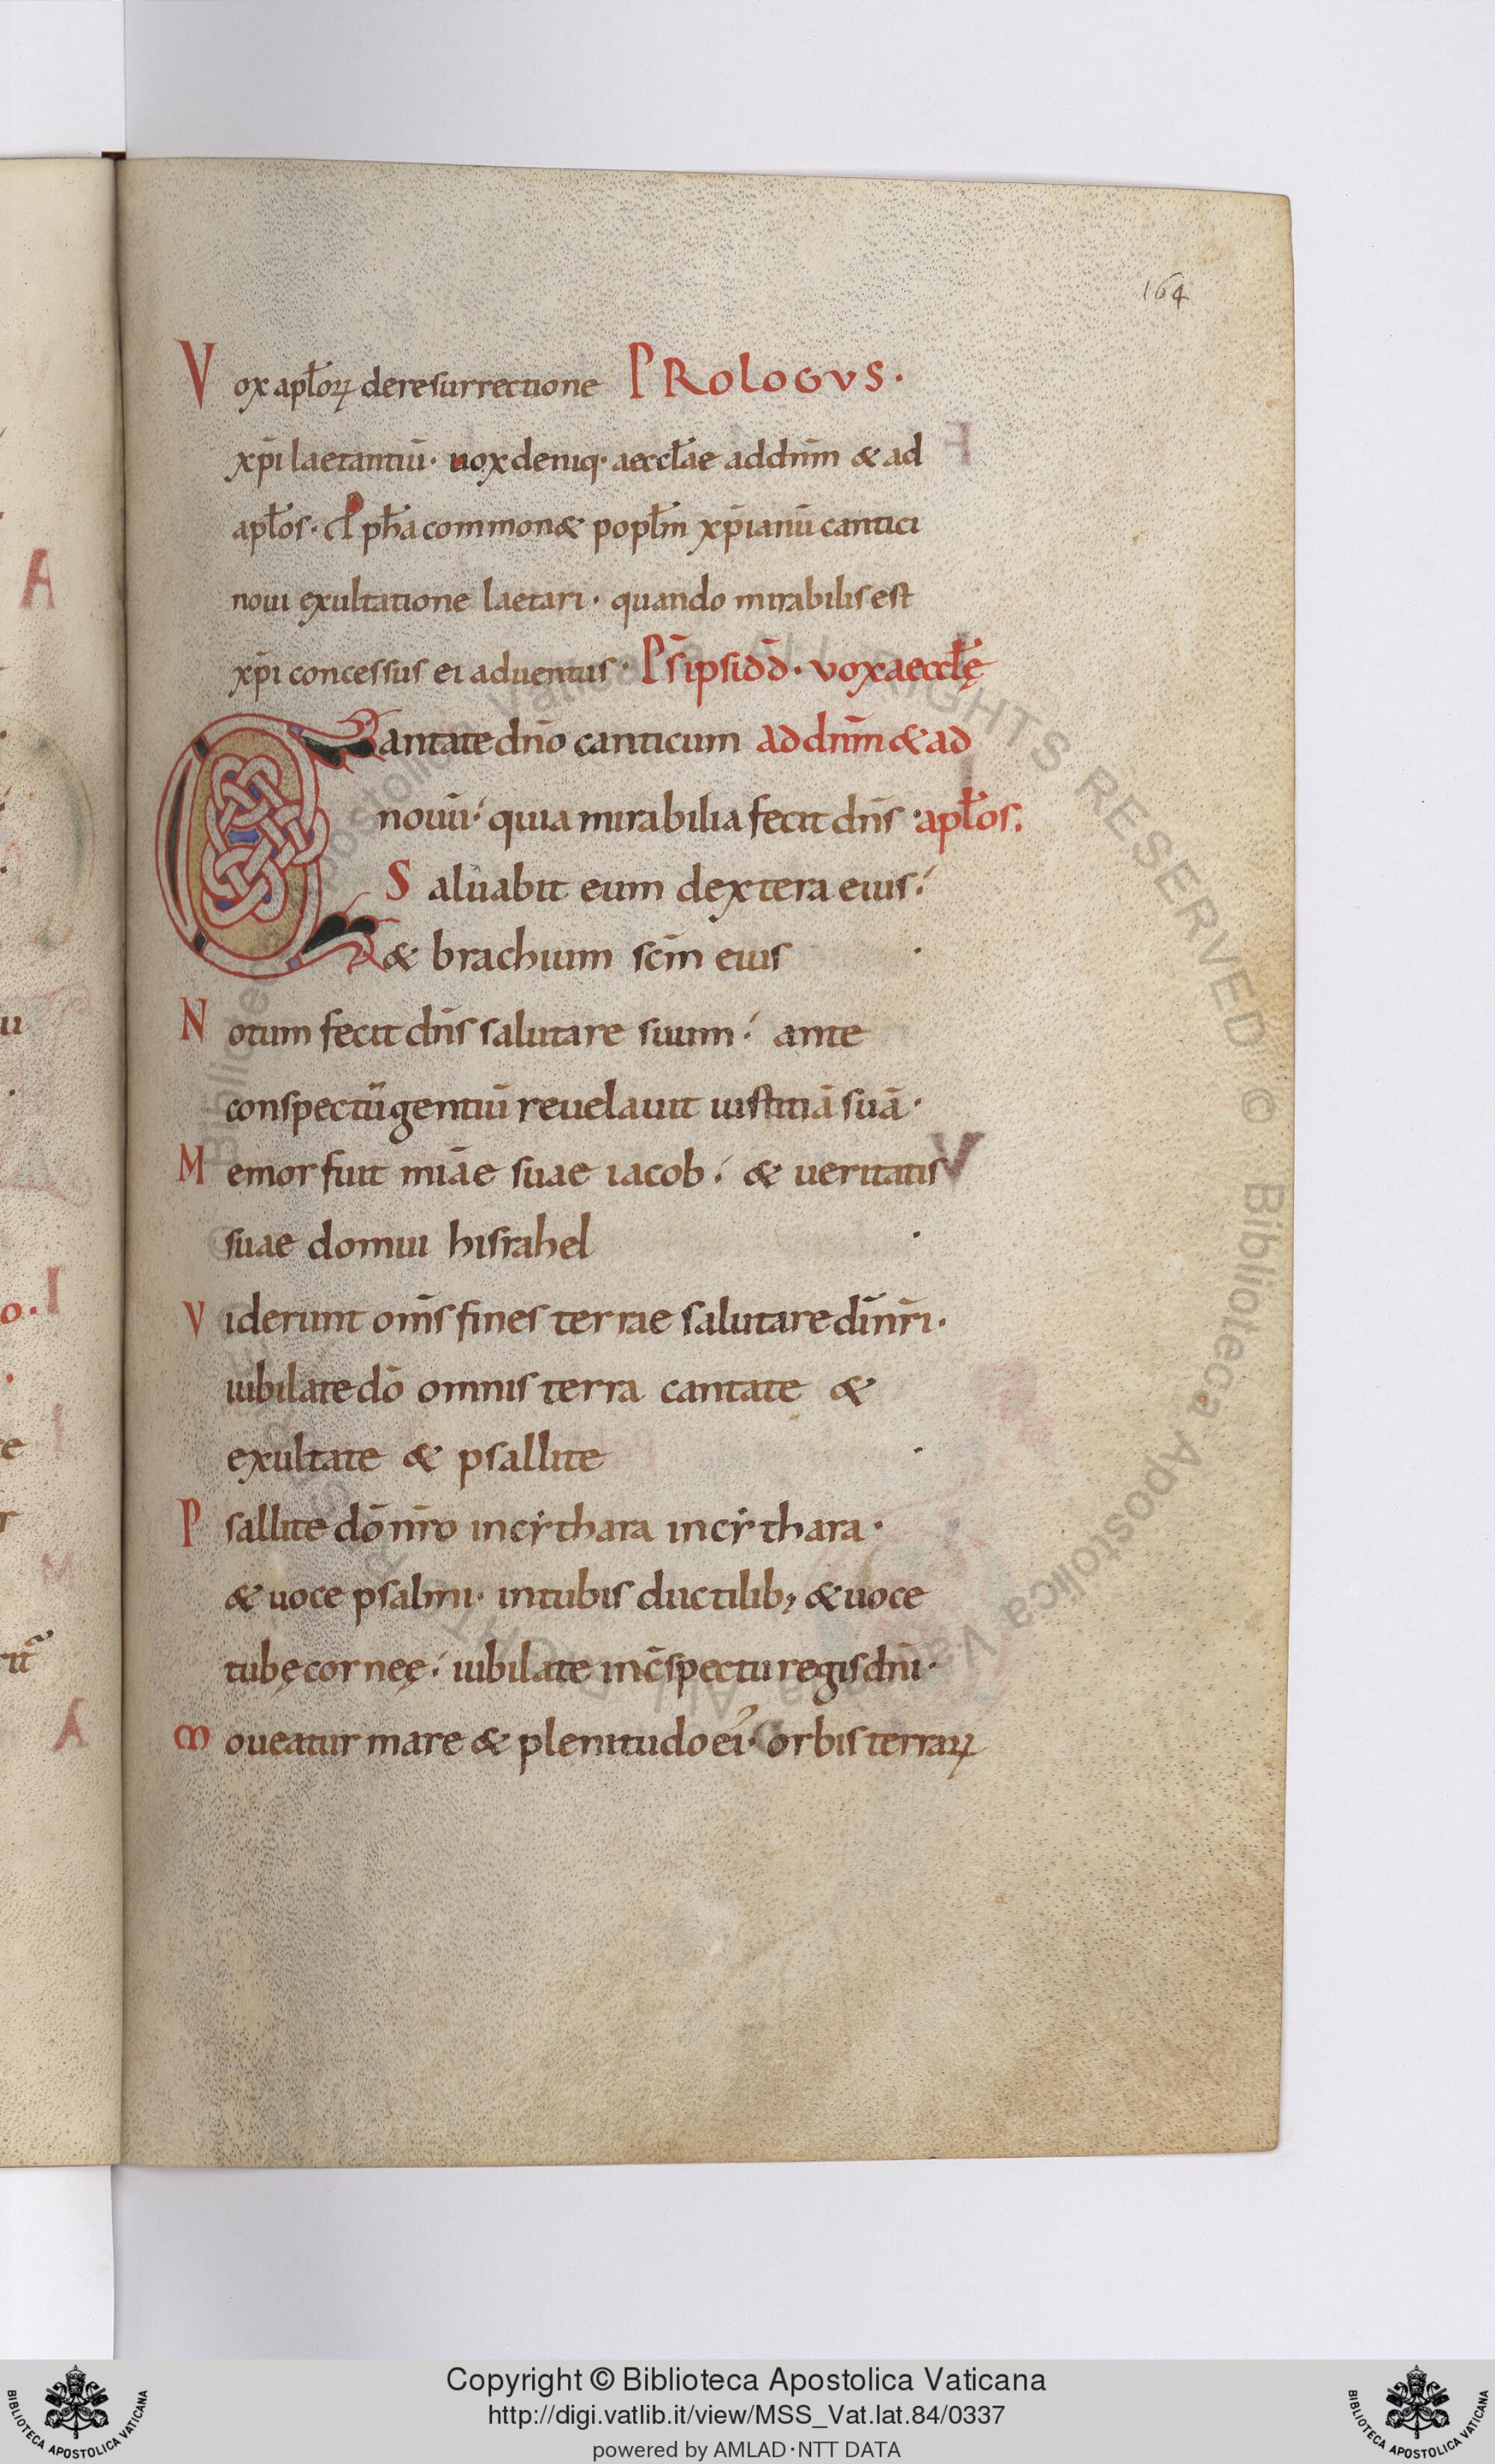 164
Vox apl̄oꝝ de resurrectione PROLOGVS·
xp̄i laetantiū· uox deniq· aeccl̄ae ad dn̄m & ad
apl̄os· Pph̄a common& popl̄m xp̄ianū cantici
noui exultatione laetari· quando mirabilis est
xp̄i concessus ei aduentus· Ps̄ ipsi dd̄· vox aeccl̄ę
Cantate dn̄o canticum ad dn̄m & ad
nouū· quia mirabilia fecit dn̄s· apl̄os.
Saluabit eum dextera eius·
& brachium sc̄m eius ·
Notum fecit dn̄s salutare suum· ante
conspectū gentiū reuelauit iustitiā suā·
Memor fuit miāe suae iacob· & ueritatis
suae domui hisrahel ·
Viderunt om̄s fines terrae salutare dī nr̄i·
iubilate dō omnis terra cantate &
exultate & psallite ·
Psallite dō nr̄o in cẏthara in cẏthara·
& uoce psalmi· in tubis ductilib; & uoce
tubę corneę· iubilate in c̄spectu regis dn̄i·
Moueatur mare & plenitudo ei᾽· orbis terraꝝ
Copyright © Biblioteca Apostolica Vaticana
http://digi.vatlib.it/view/MSS_Vat.lat.84/0337
powered by AMLAD·NTT DATA
BIBLIOTECA APOSTOLICA VATICANA
BIBLIOTECA APOSTOLICA VATICANA